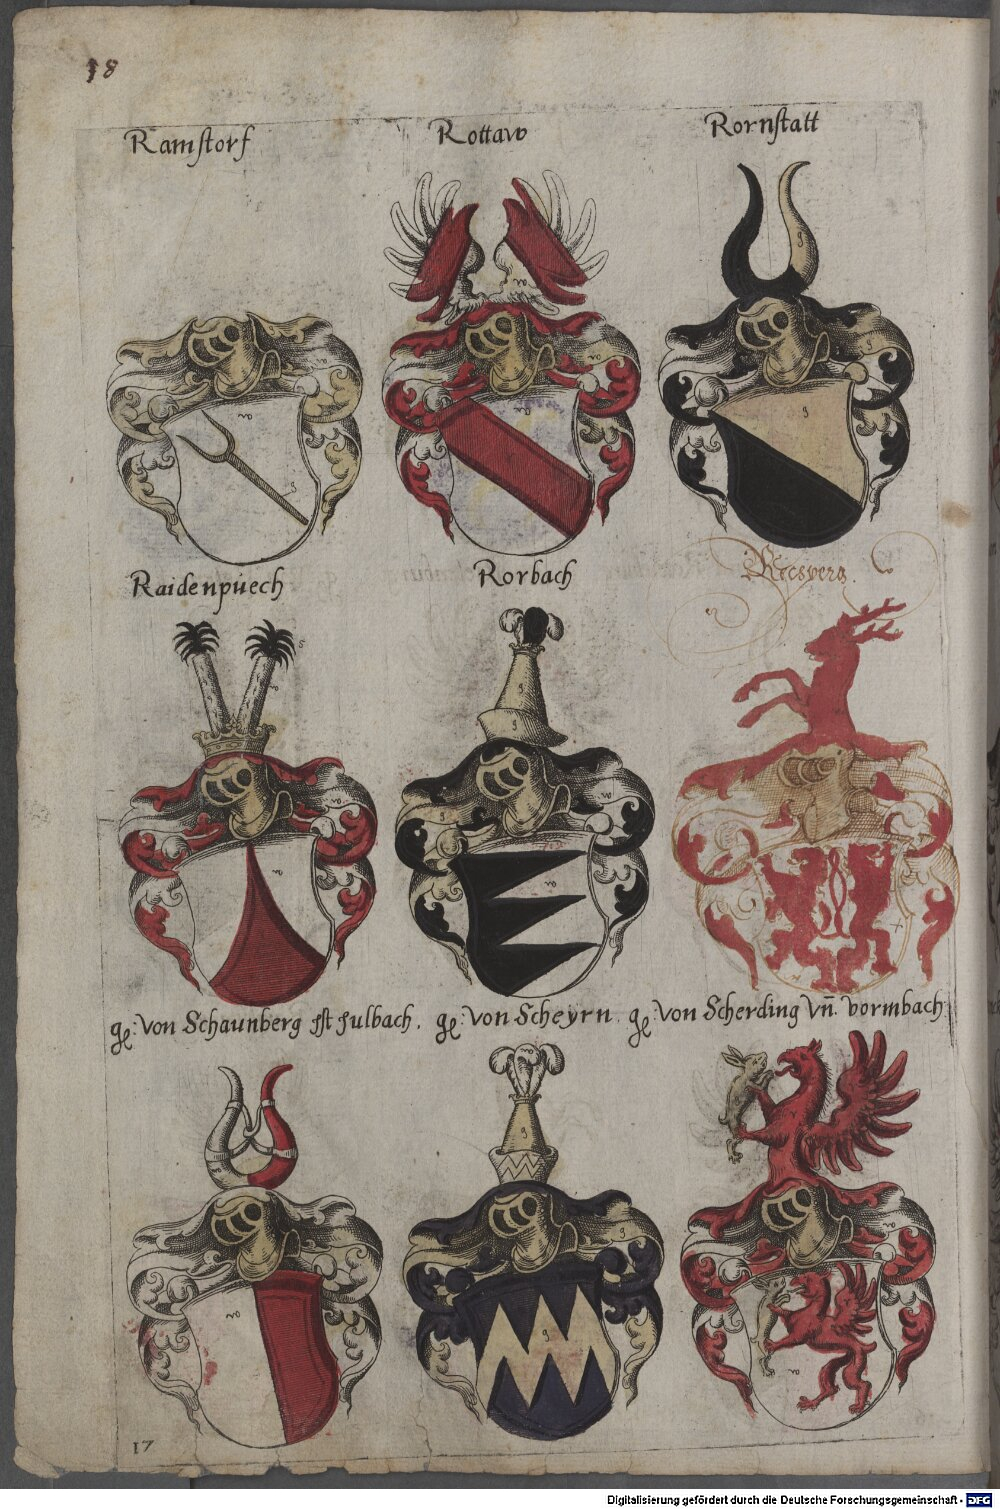 18
Ramstorf Rottaw Rornstatt
Raidenpuech Rorbach
ge: von Schaunberg sst sulbach. ge: von Scheyrn. ge: von Scherding Vn̄. vormbach
17
Digitalisierung gefördert durch die Deutsche Forschungsgemeinschaft - DFG